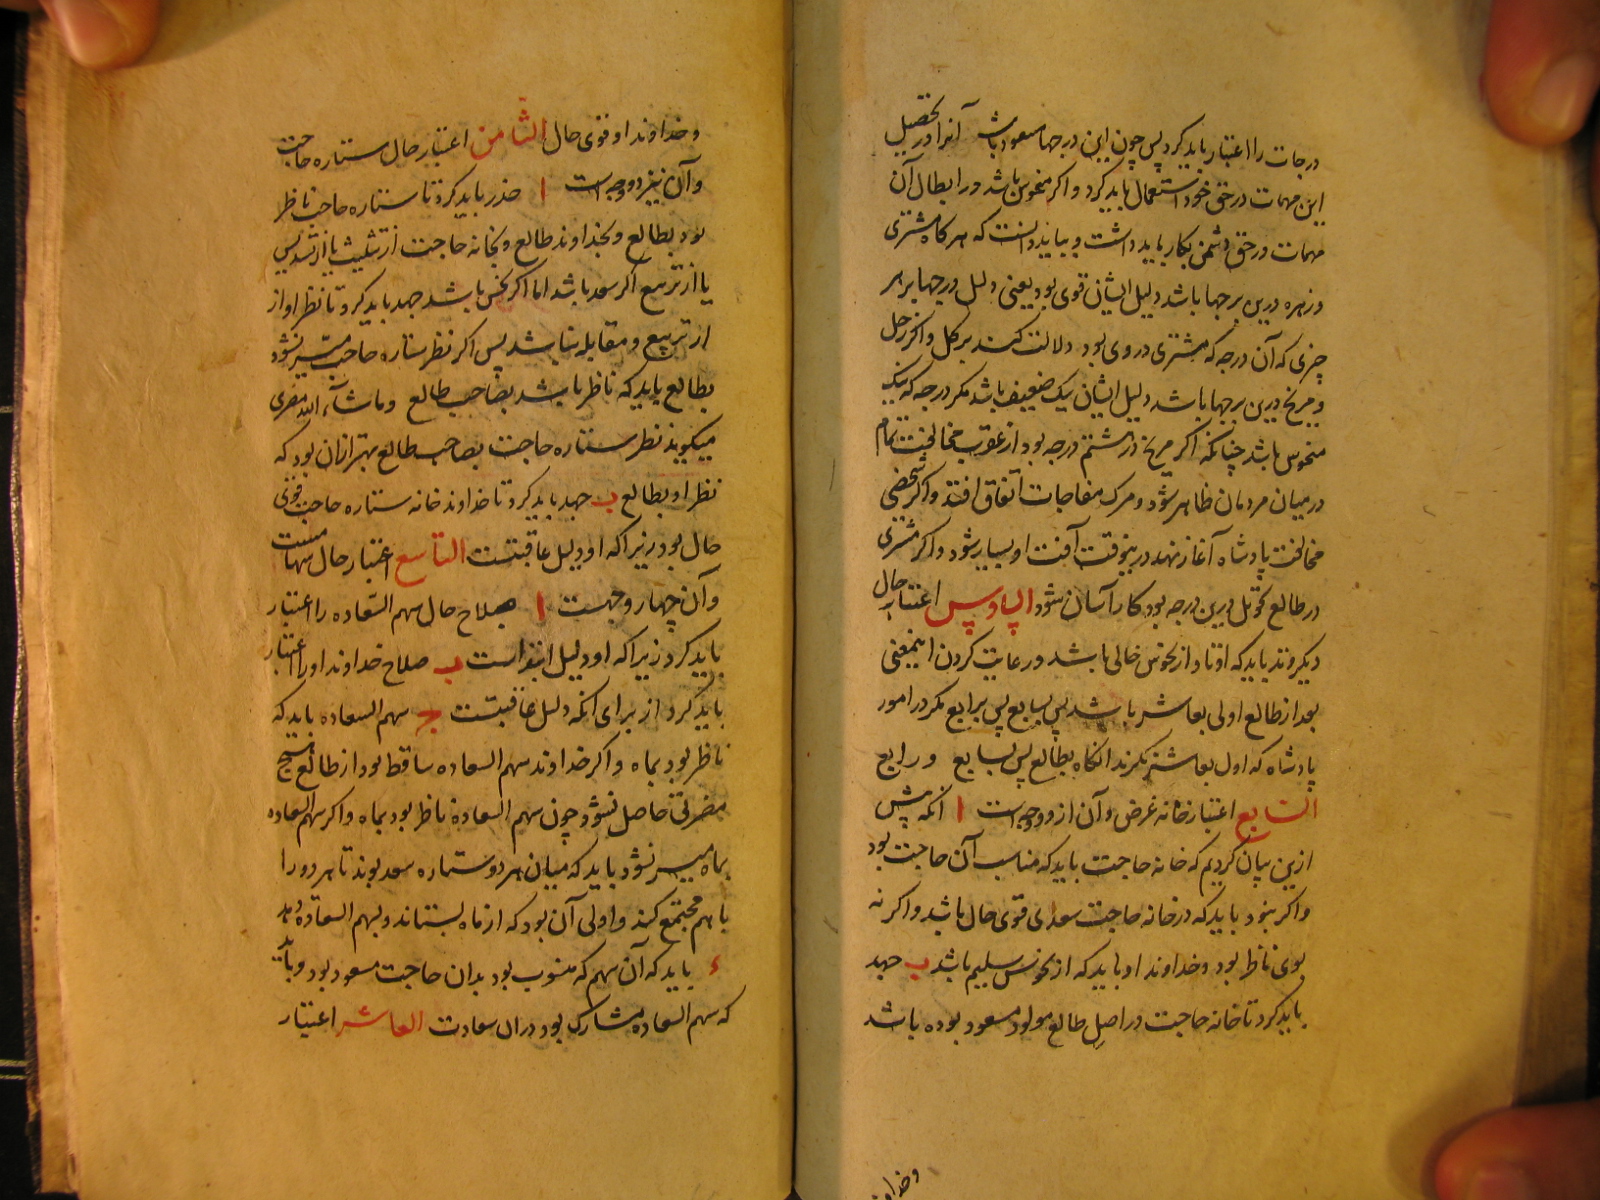 درجات را اعتبار باید کرد پس چون این درجها مسعود باشد آنرا در تحصیل
این مهمات در حق خود استعمال باید کرد و اگر منحوس باشد در ابطال آن
مهمات در حق دشمن بکار باید داشت و بباید دانست که هرکاه مشتری
و زهره درین برجها باشد دلیل ایشان قوی بود یعنی دلیل درجها بر هر
چیزی که آن درجه که مشتری در وی بود دلالت کند بر کل و اگر زحل
و مریخ درین برجها باشد دلیل ایشان یک ضعیف باشد مکر درجه که نیک
منحوس باشد چنانکه اگر مریخ در هشتم درجه بود از عقرب مخالفت تمام
در میان مردمان ظاهر شود و مرک مفاجات اتفاق افتد و اگر شخصی
مخالفت پادشاه آغاز نهد درینوقت آفت او بسیار شود و اگر مشتری
در طالع تحویل درین درجه بود کار آسان شود السادس اعتبار حال
دیکر وتد باید که اوتاد از نحوس خالی باشد و رعایت کردن اینمعنی
بعد از طالع اولی بعاشر باشد پس بسابع پس برابع مکر در امور
پادشاه که اول بعاشر نکرند انکاه بطالع پس بسابع و رابع
السابع اعتبار خانه غرض و آن از دو وجه است ا انکه پیش
ازین بیان کردیم که خانه حاجت باید که مناسب آن حاجت بود
و اکر نبود باید که در خانه حاجت سعدی قوی حال باشد و اکر نه
بوی ناظر بود و خداوند او باید که از نحوس سلیم باشد ب جهد
باید کرد تا خانه حاجت در اصل طالع مولود مسعود بوده باشد
و خداوند
و خداوند او قوی حال الثامن اعتبار حال ستاره حاجت
و آن نیز دو وجه است ا حذر باید کرد تا ستاره حاجت ناظر
بود بطالع و بخداوند طالع و بخانه حاجت از تثلیث یا از تسدیس
یا از تربیع اکر سعد باشد اما اکر نحس باشد جهد باید کرد تا نظر او از
از تربیع و مقابله نباشد پس اکر نظر ستاره حاجت میسر نشود
بطالع باید که ناظر باشد بصاحب طالع و ماشاء الله مصری
میکوید نظر ستاره حاجت بصاحب طالع بهتر ازان بود که
نظر او بطالع ب جهد باید کرد تا خداوند خانه ستاره حاجت قوی
حال بود زیرا که او دلیل عاقبتست التاسع اعتبار حال سهامست
و آن چهار وجهست ا صلاح حال سهم السعاده را اعتبار
باید کرد زیرا که او دلیل ابتداست ب صلاح خداوند او را اعتبار
باید کرد از برای انکه دلیل عاقبتست ج سهم السعاده باید که
ناظر بود بماه و اکر خداوند سهم السعاده ساقط بود از طالع هیچ
مضرتی حاصل نشود چون سهم السعاده ناظر بود بماه و اکر سهم السعاده
بماه میسر نشود باید که میان هر دو ستاره سعد بوند تا هر دو را
باهم مجتمع کند و اولی آن بود که از ماه بستاند و بسهم السعاده دهد
ء باید که آن سهم که منسوب بود بدان حاجت مسعود بود و باید
که سهم السعاده مشارک بود دران سعادت العاشر اعتبار